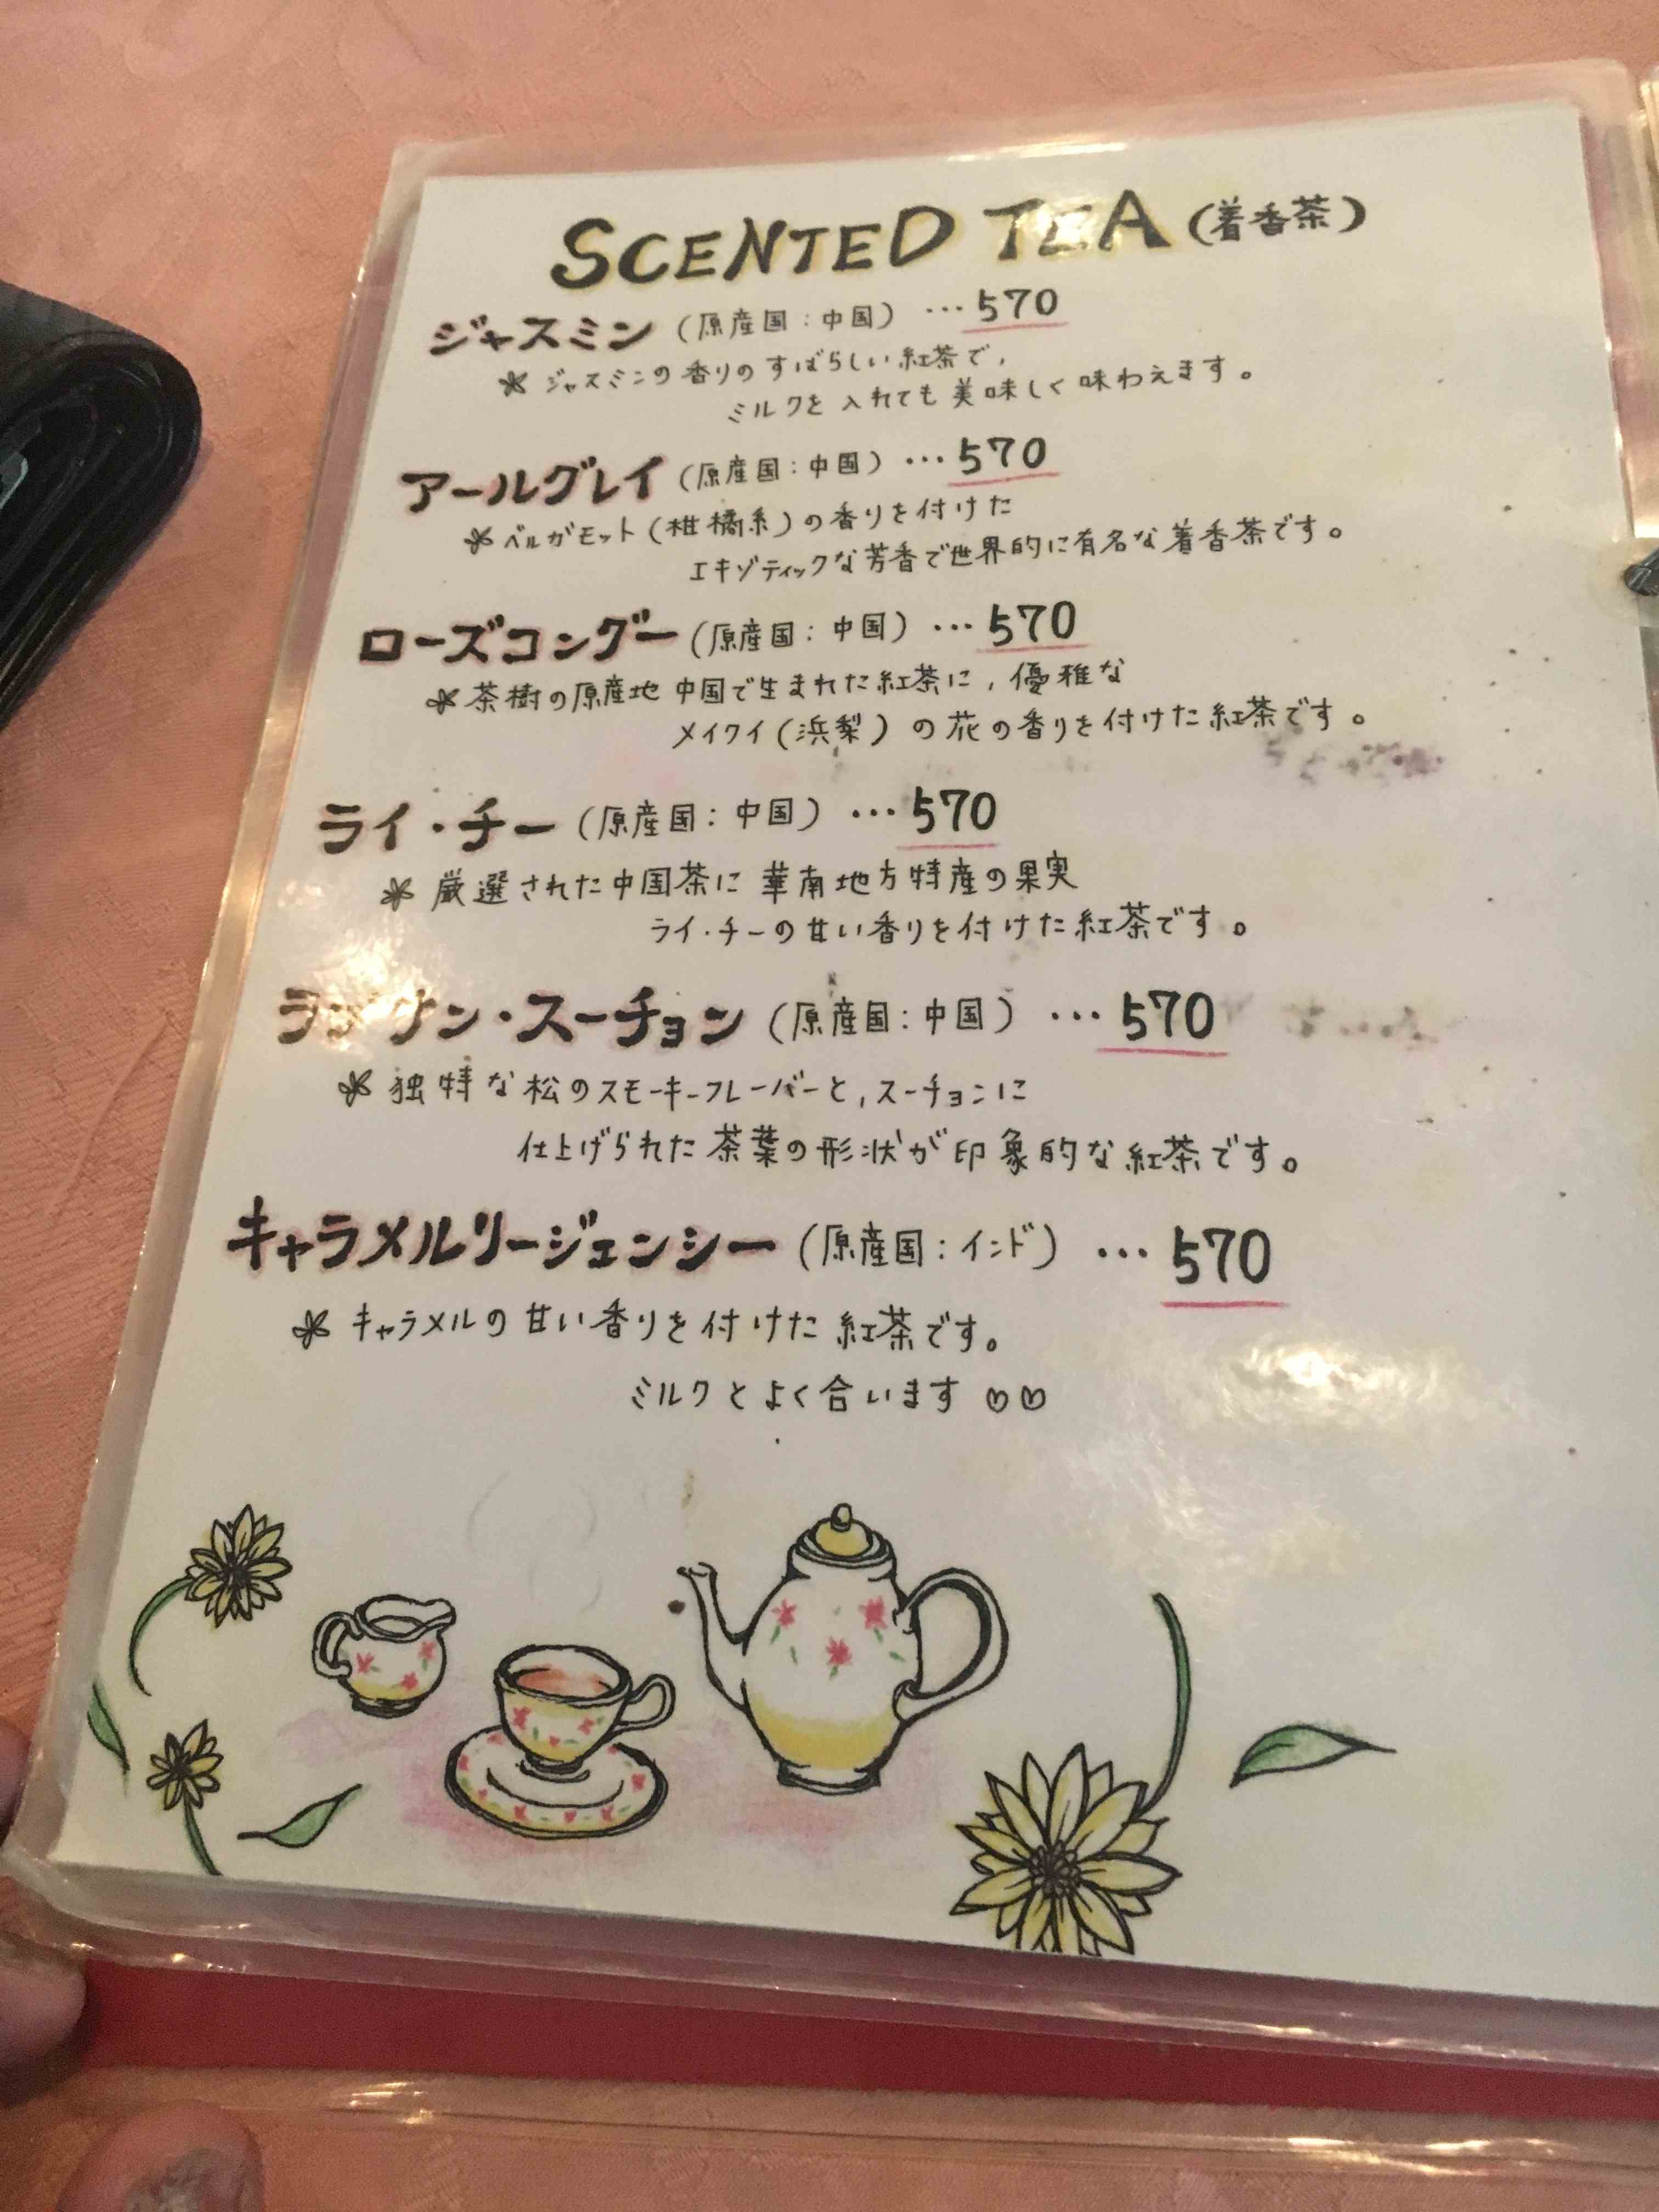 SCENTED TEA (着香茶)
ジャスミン (原産国:中国) …570
＊ジャスミンの香りのすばらしい紅茶で,
ミルクを入れても美味しく味わえます。
アールグレイ (原産国:中国) …570
＊ベルガモット(柑橘系)の香りを付けた
エキゾティックな芳香で世界的に有名な着香茶です。
ローズコングー (原産国:中国) …570
＊茶樹の原産地中国で生まれた紅茶に,優雅な
メイクイ(浜梨)の花の香りを付けた紅茶です。
ライ・チー (原産国:中国) …570
＊厳選された中国茶に華南地方特産の果実
ライ・チーの甘い香りを付けた紅茶です。
ラプサン・スーチョン (原産国:中国) …570
＊独特な松のスモーキーフレーバーと,スーチョンに
仕上げられた茶葉の形状が印象的な紅茶です。
キャラメルリージェンシー (原産国:インド) …570
＊キャラメルの甘い香りを付けた紅茶です。
ミルクとよく合います♡♡